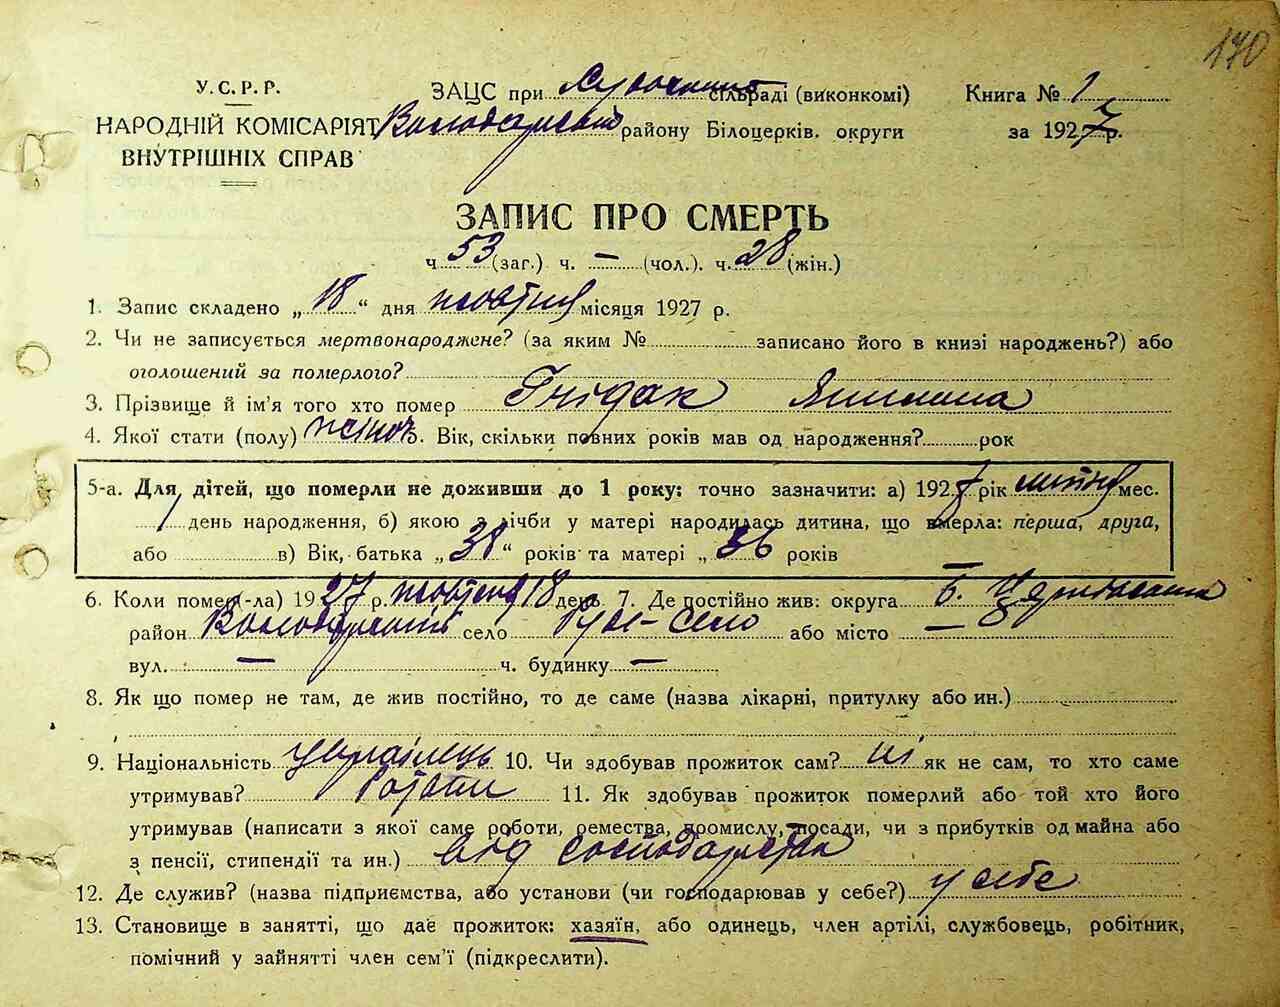 170
У.С.Р.Р.
НАРОДНІЙ КОМІСАРІЯТ
ВНУТРІШНІХ СПРАВ
ЗАЦС при сільраді (виконкомі)
Володарського району Білоцерків. округи
Книга № 1
за 1927 р.
ЗАПИС ПРО СМЕРТЬ
ч 53 (заг.) ч. — (чол.). ч. 28 (жін.)
1. Запис складено „18“ дня жовтня місяця 1927 р.
2. Чи не записується мертвонароджене? (за яким № записано його в книзі народжень?) або
оголошений за померлого?
3. Прізвище й ім'я того хто помер Грідак
4. Якої стати (полу) жіноч. Вік, скільки повних років мав од народження? рок
5-а. Для дітей, що померли не доживши до 1 року: точно зазначити: а) 1927 рік мес.
день народження, б) якою з лічби у матері народилась дитина, що вмерла: перша, друга,
або в) Вік, батька „38“ років та матері „36 років
6. Коли помер(-ла) 1927 р. жовтня 18 день 7. Де постійно жив: округа Б. Церківська
район Володарський село або місто —
вул. — ч. будинку —
8. Як що помер не там, де жив постійно, то де саме (назва лікарні, притулку або ин.)
9. Національність українець 10. Чи здобував прожиток сам? ні як не сам, то хто саме
утримував? 11. Як здобував прожиток померлий або той хто його
утримував (написати з якої саме роботи, ремества, промислу, посади, чи з прибутків од майна або
з пенсії, стипендії та ин.) від
12. Де служив? (назва підприємства, або установи (чи господарював у себе?) у себе
13. Становище в занятті, що дає прожиток: хазяїн, або одинець, член артілі, службовець, робітник,
помічний у зайнятті член сем'ї (підкреслити).